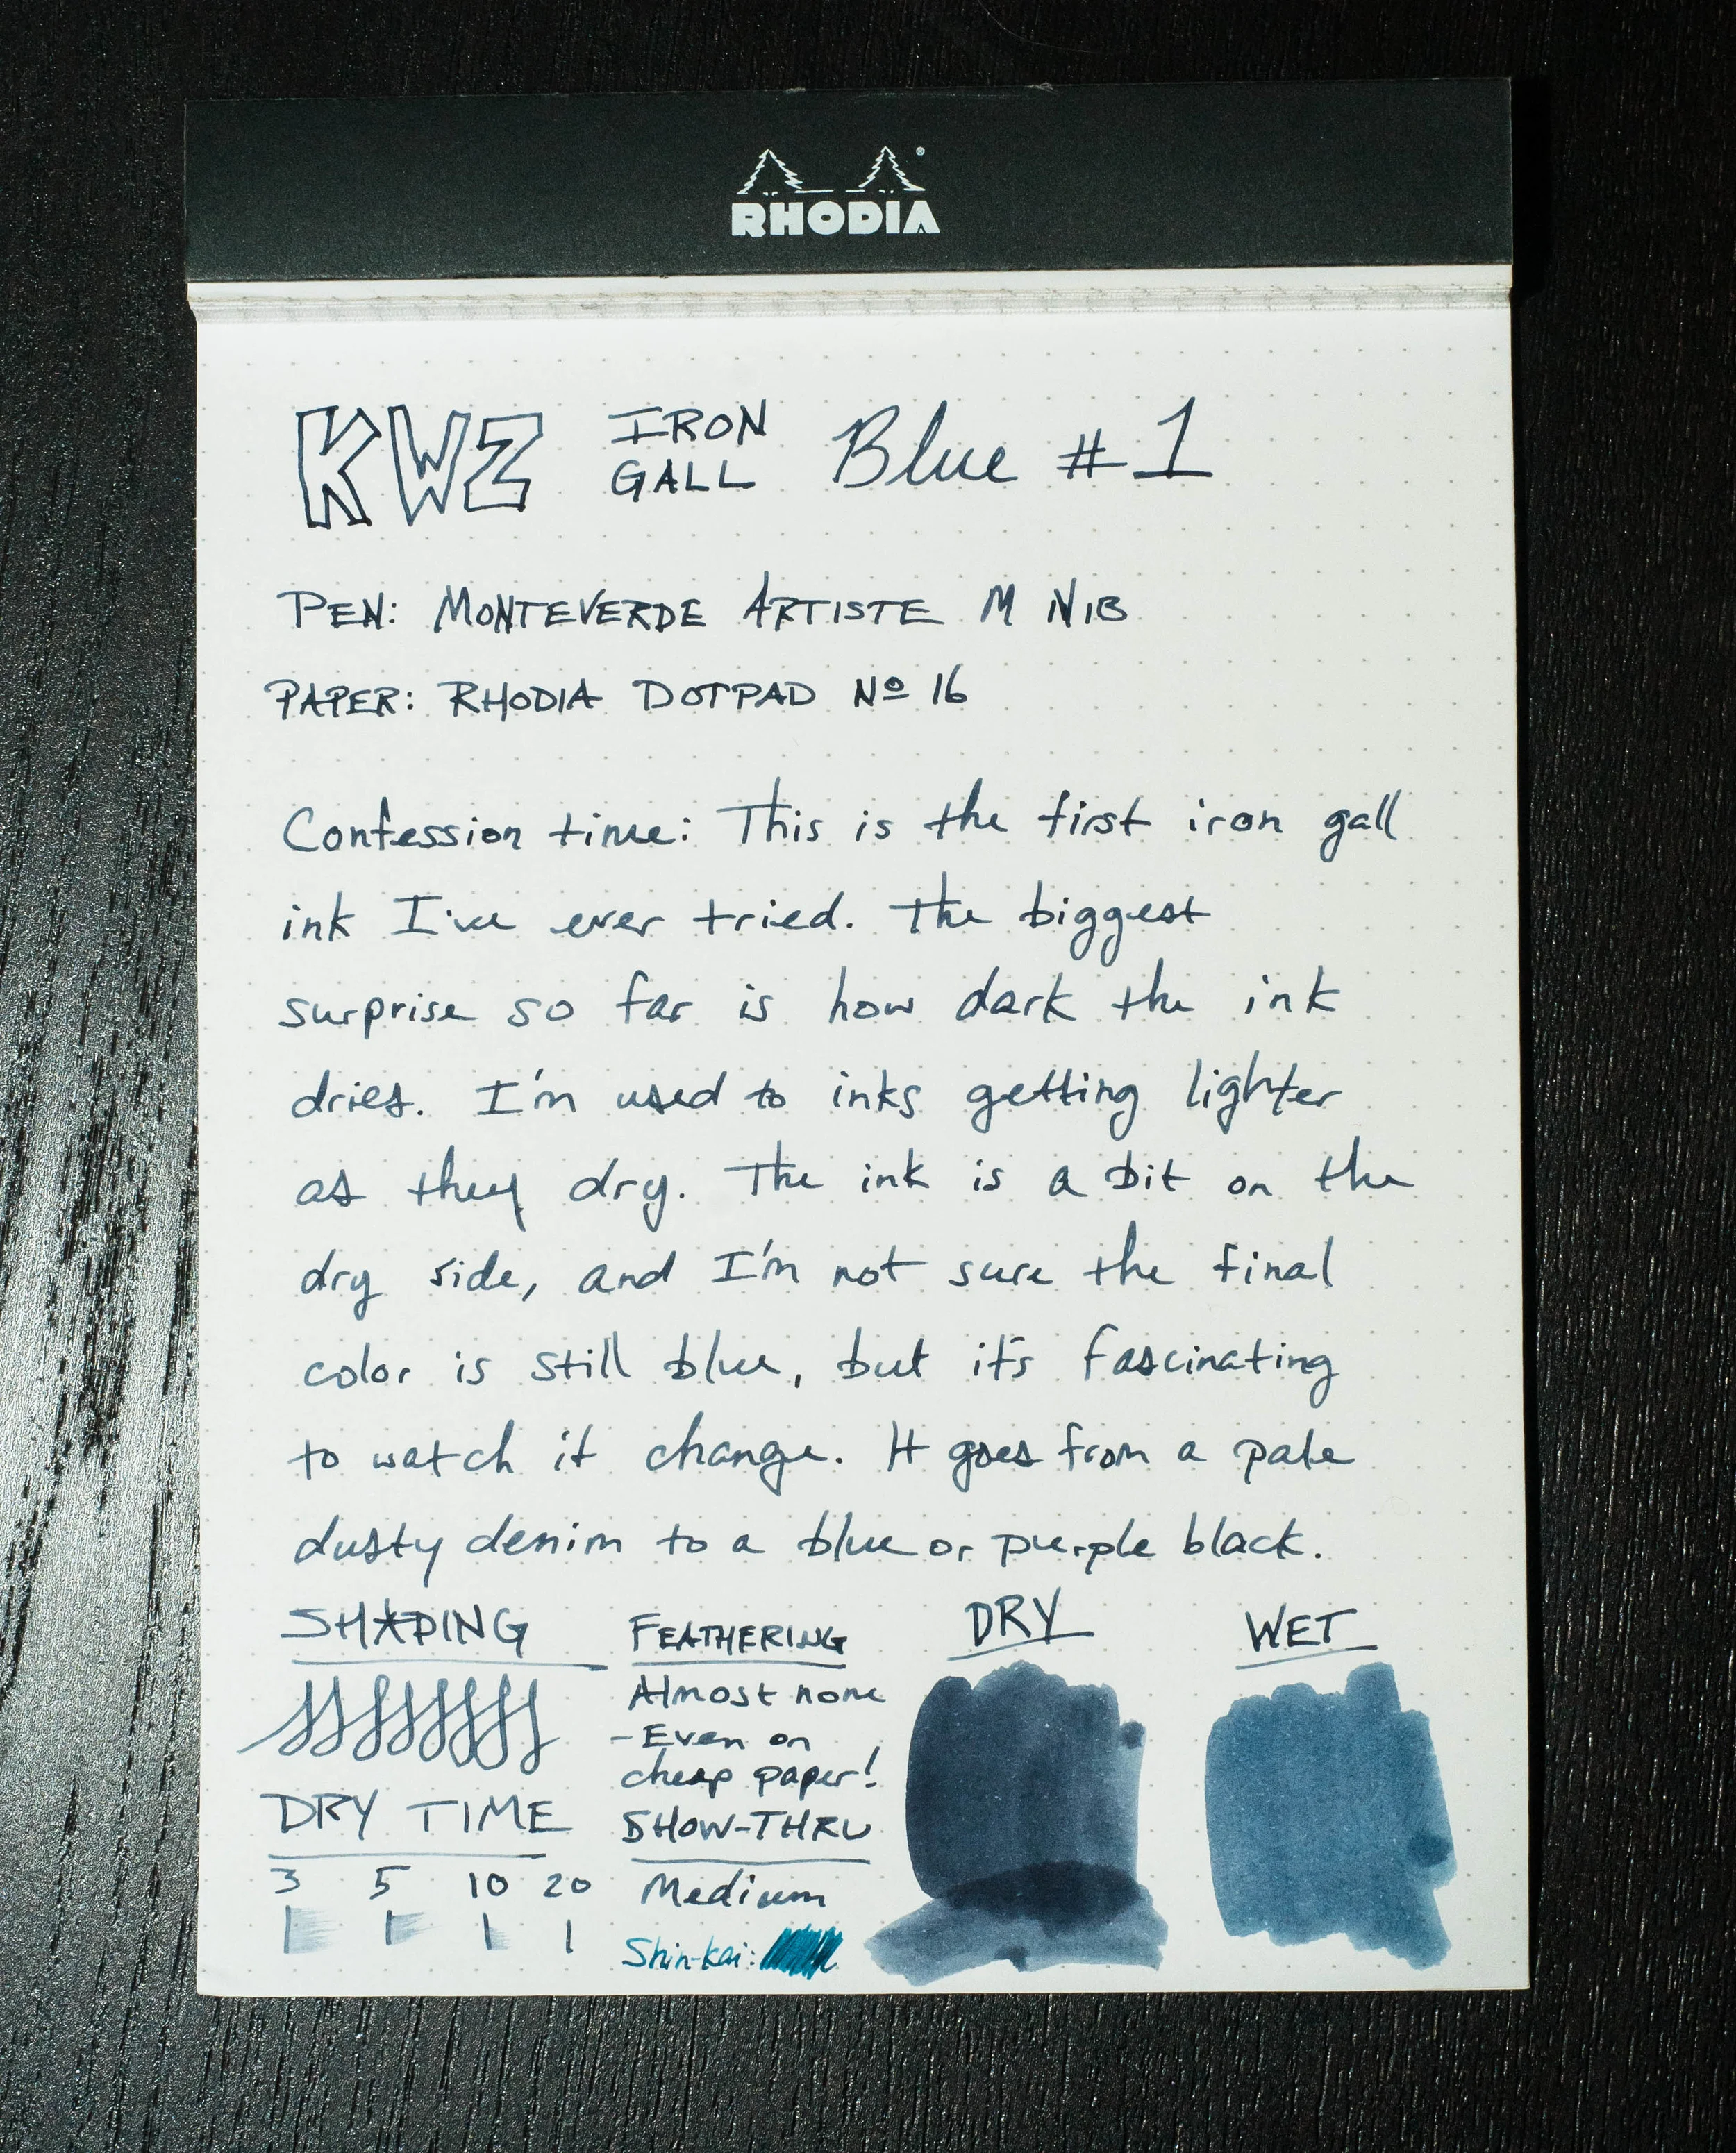 RHODIA
KWZ IRON GALL Blue #1
PEN: MONTEVERDE ARTISTE M NIB
PAPER: RHODIA DOTPAD Nº 16
Confession time: This is the first iron gall
ink I've ever tried. The biggest
surprise so far is how dark the ink
dries. I'm used to inks getting lighter
as they dry. The ink is a bit on the
dry side, and I'm not sure the final
color is still blue, but it's fascinating
to watch it change. It goes from a pale
dusty denim to a blue or purple black.
SHADING
DRY TIME
3 5 10 20
FEATHERING
Almost none
-Even on
cheap paper!
SHOW-THRU
Medium
Shin-kai:
DRY
WET